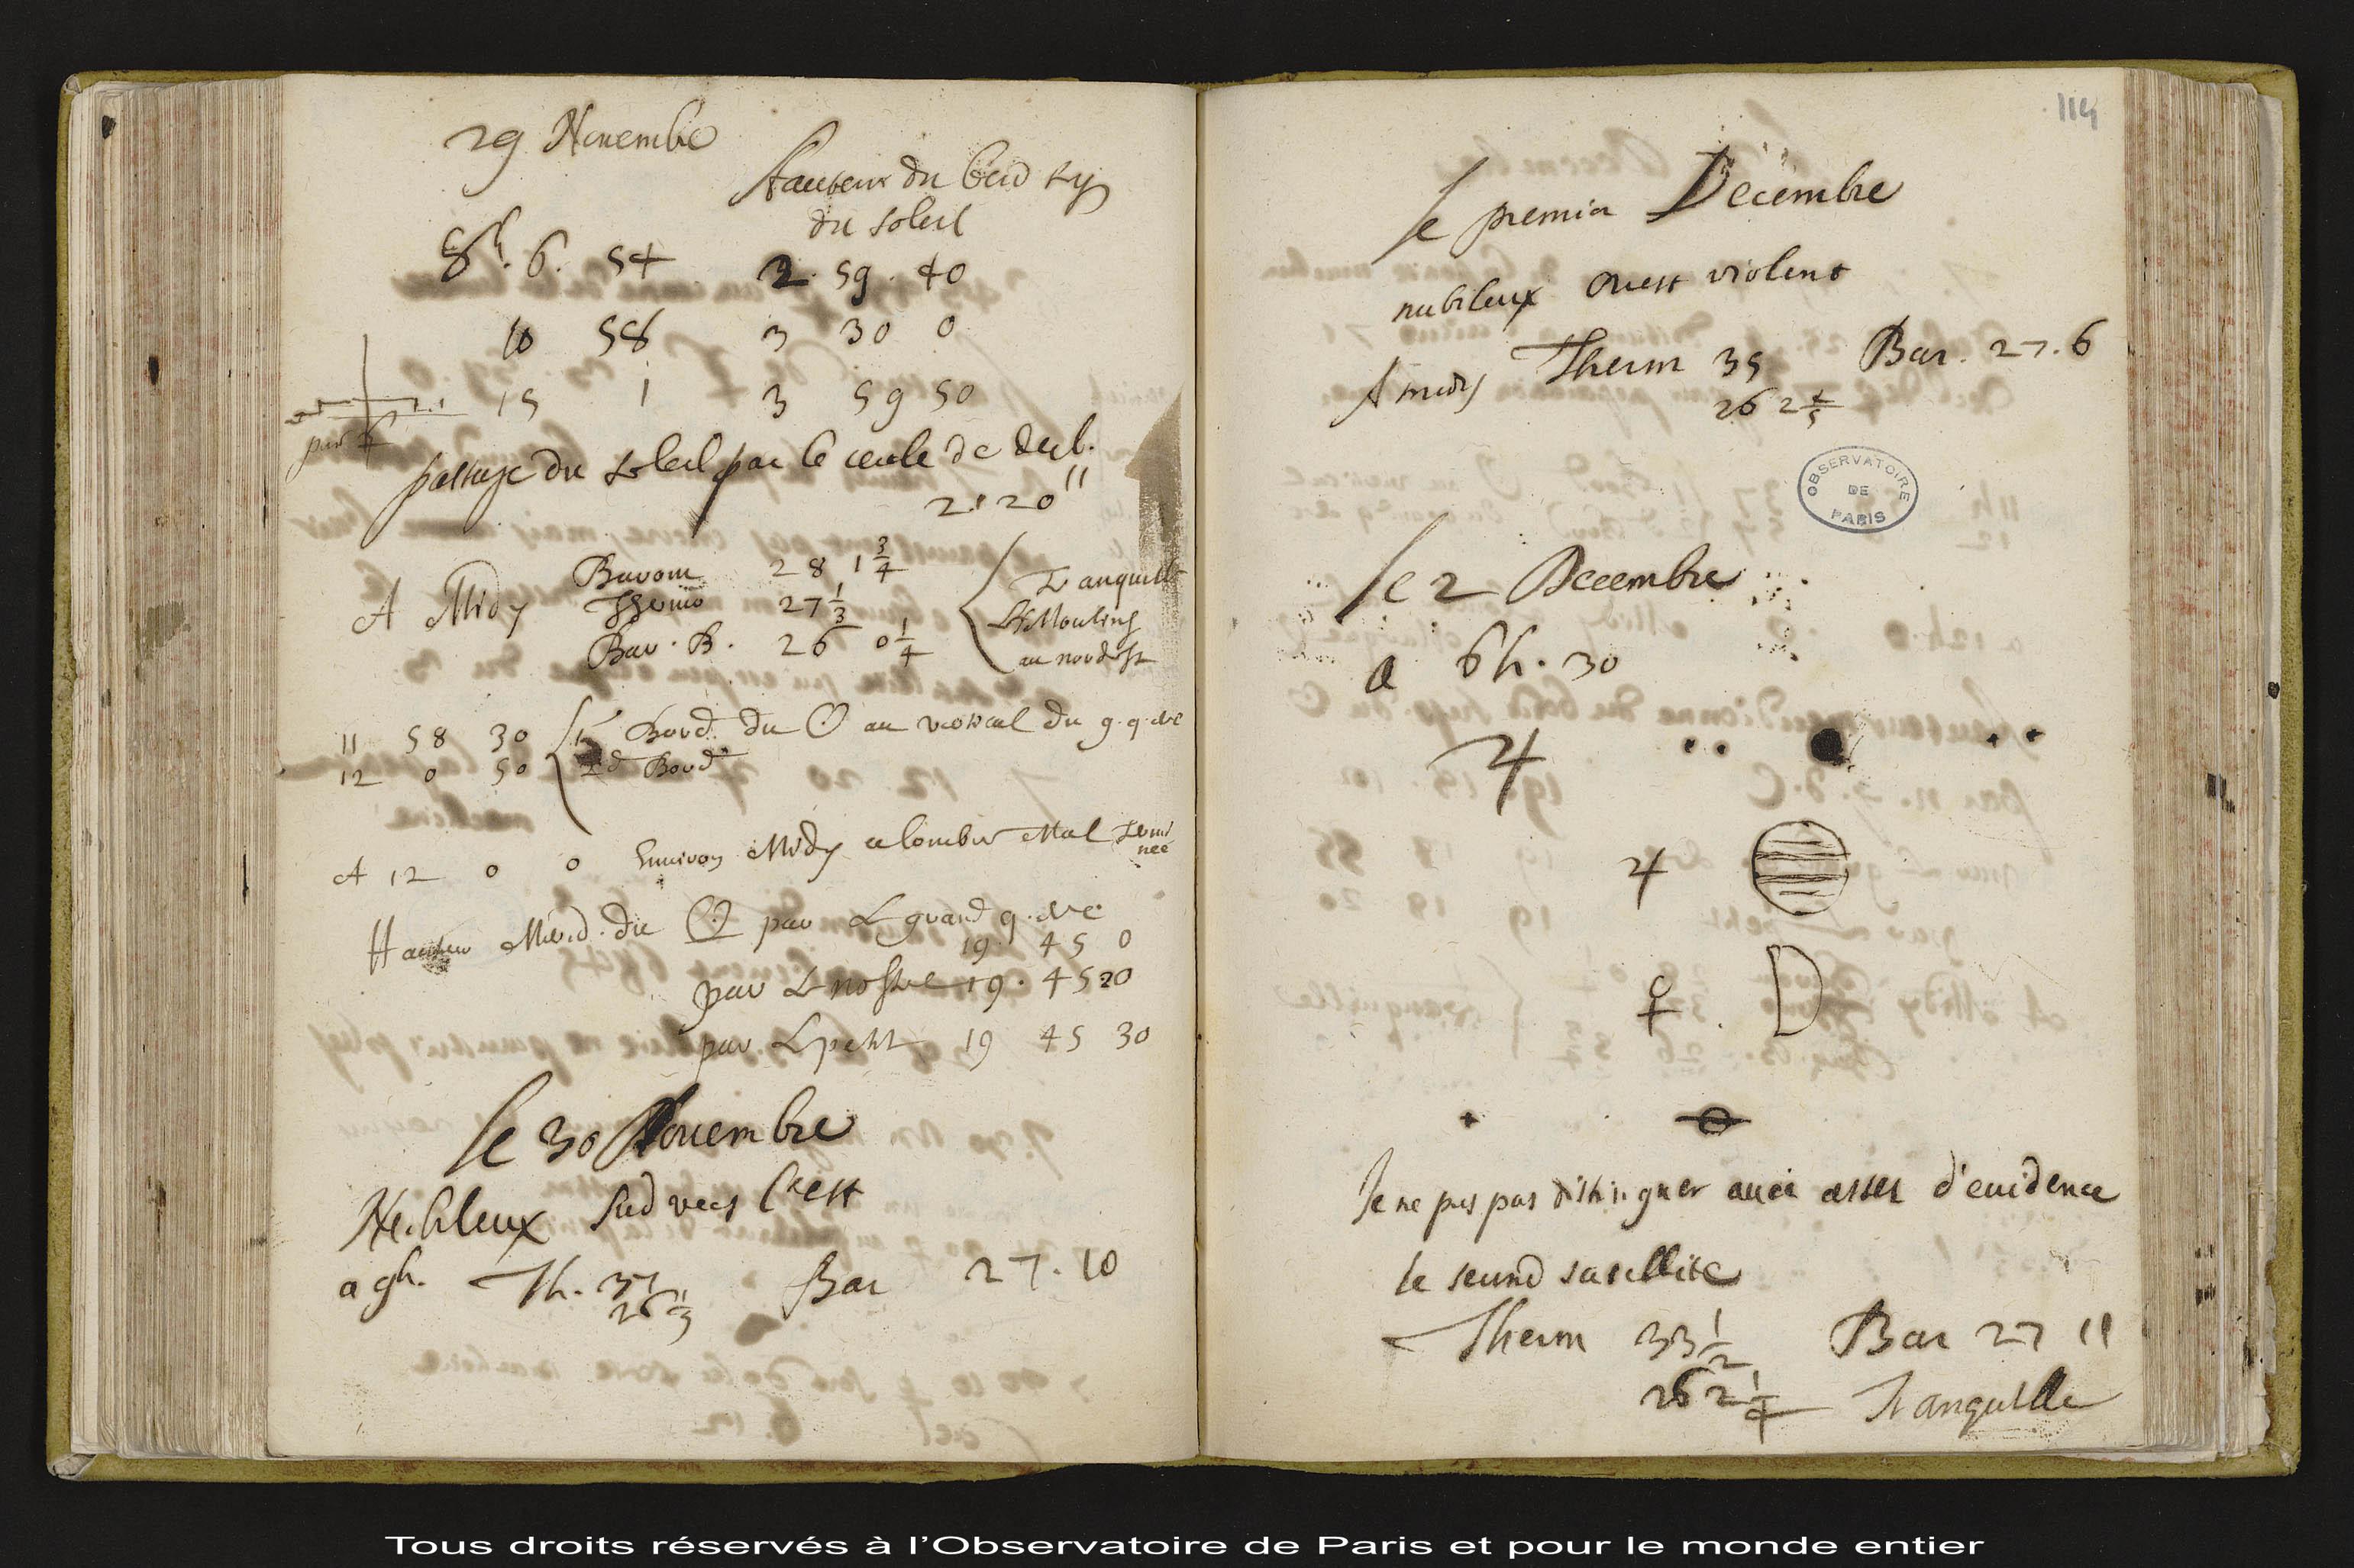 29 Novembre
hauteur du bord
du soleil
8h. 6. 54 2. 59. 40
10 58 3 30 0
15 1 3 59 50
par
passage du soleil par le cercle de decl.
2' 20"
A Midy Barom 28 1 3/4
Thermo 27 1/3
Bar. B. 26 0 1/4
Tranquille
Moulins
au nordest
11 58 30 1r Bord du ☉ au vertical du g. q. de c
12 0 50 2d Bord
A 12 0 0 Environ Midy a lombre Mal termi
née
Hauteur Merid. du ☉ par L grand q. de c
19. 45 0
par L nostre 19. 45 20
par L petit 19 45 30
le 30 Novembre
Nebuleux Sud vers l'est
a 9h. Th. 37 Bar 27. 10
26 1/3
114
le premier Decembre
nubileux ouest violent
A midy Therm 35 Bar. 27. 6
26 2 4/5
OBSERVATOIRE
DE
PARIS
le 2 Decembre
a 6h. 30
♃
♃
♀
Je ne pus pas distinguer avec asses d'evidence
le second satellite
Therm 33 1/2 Bar 27 11
26 2 1/4 Tranquille
Tous droits réservés à l'Observatoire de Paris et pour le monde entier